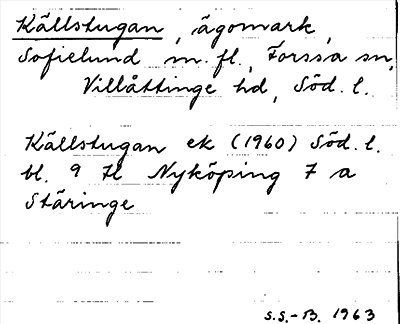 Källstugan, ägomark,
Sofielund m. fl., Forssa sn,
Villåttinge hd, Söd. l.
Källstugan ek (1960) Söd. l.
bl. 9 H Nyköping 7 a
Stäringe
S.S.-B. 1963